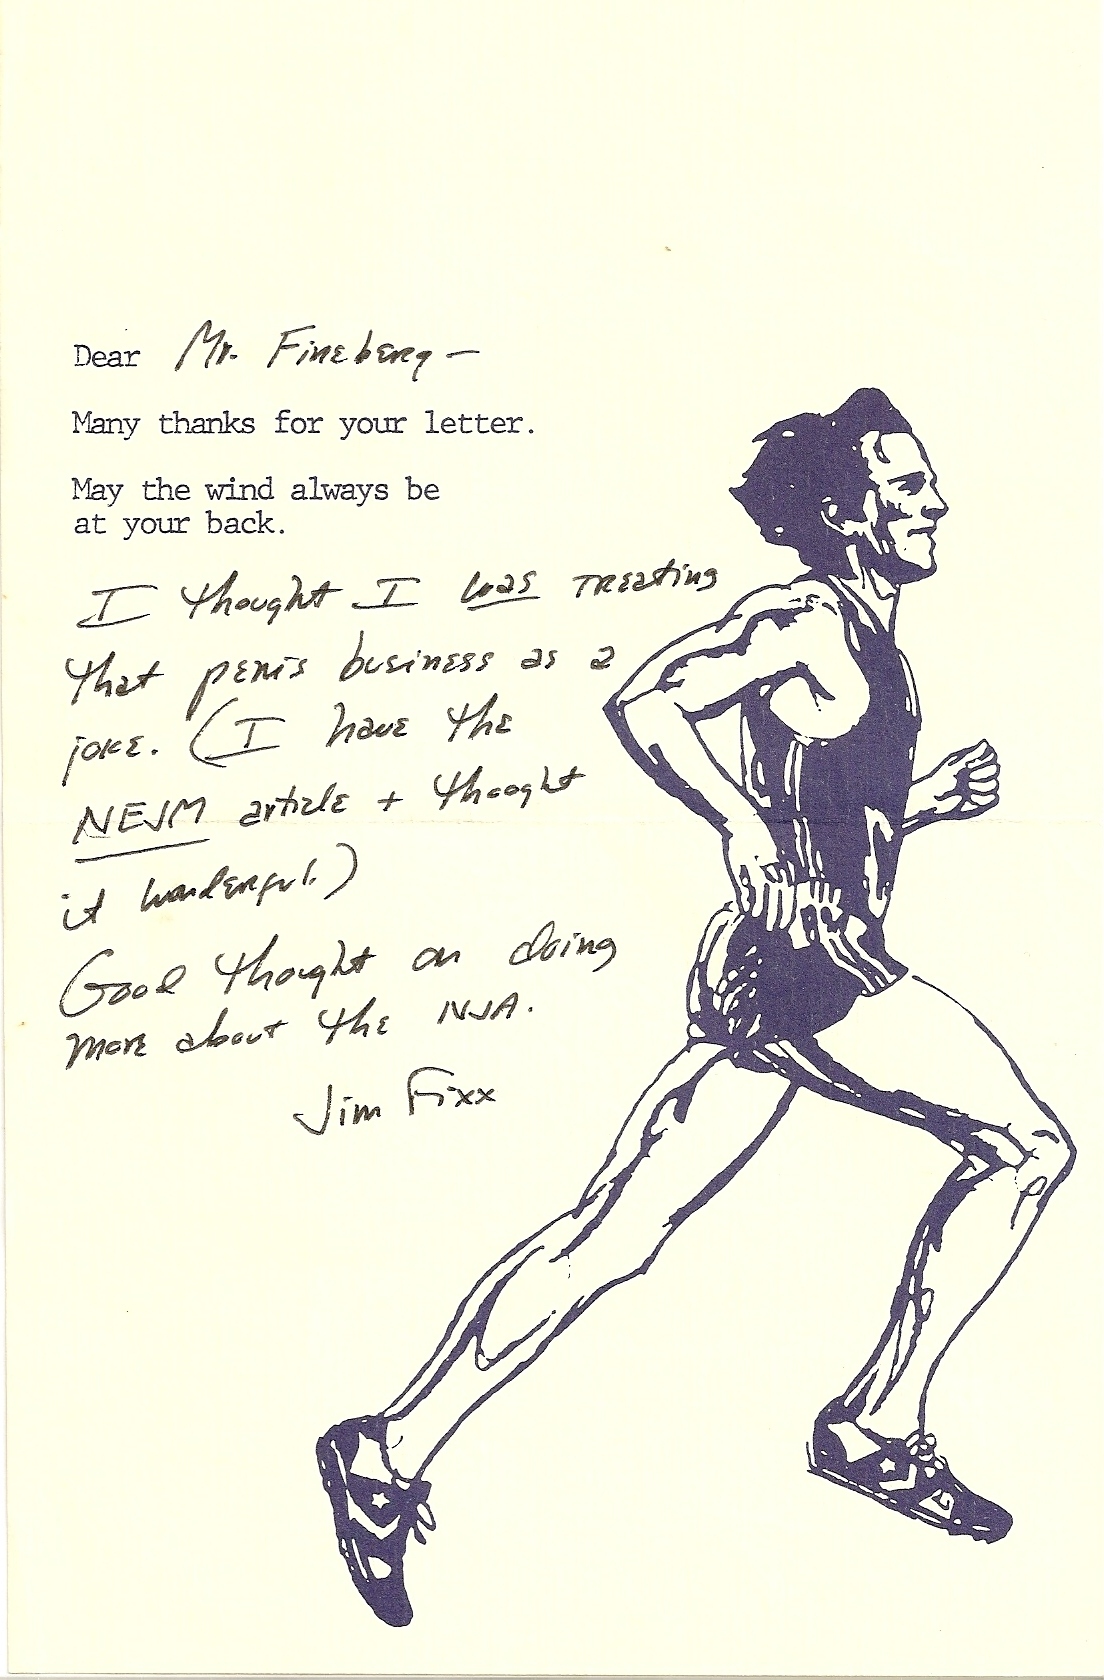 Dear Mr. Fineberg —
Many thanks for your letter.
May the wind always be
at your back.
I thought I was treating
that penis business as a
joke. (I have the
NEJM article + thought
it wonderful.)
Good thought on doing
more about the NJA.
Jim Fixx